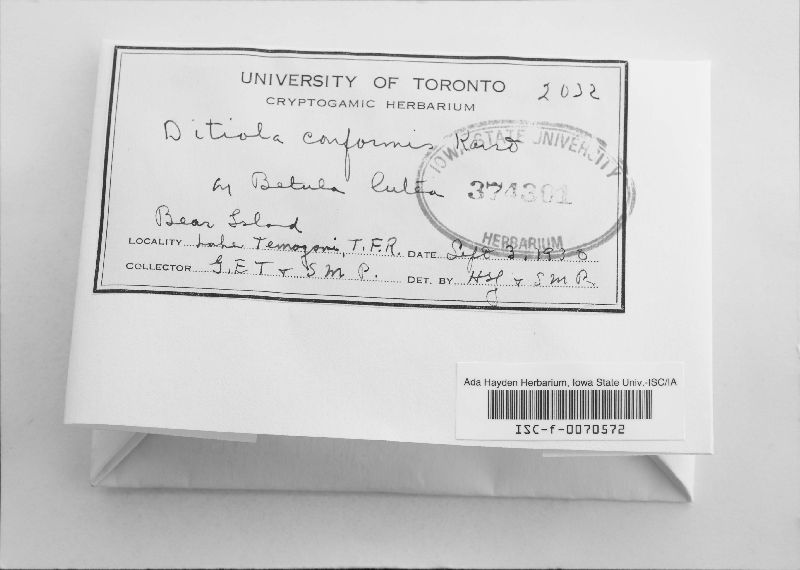 UNIVERSITY OF TORONTO 2032
CRYPTOGAMIC HERBARIUM
Ditiola conformis Karst
on Betula lutea
IOWA STATE UNIVERSITY
374301
HERBARIUM
Bear Island
LOCALITY Lake Temagami, T.F.R. DATE Sept 3, 1930
COLLECTOR G.E.T & S M P. DET. BY HSJ & S M P.
Ada Hayden Herbarium, Iowa State Univ.-ISC/IA
ISC-f-0070572